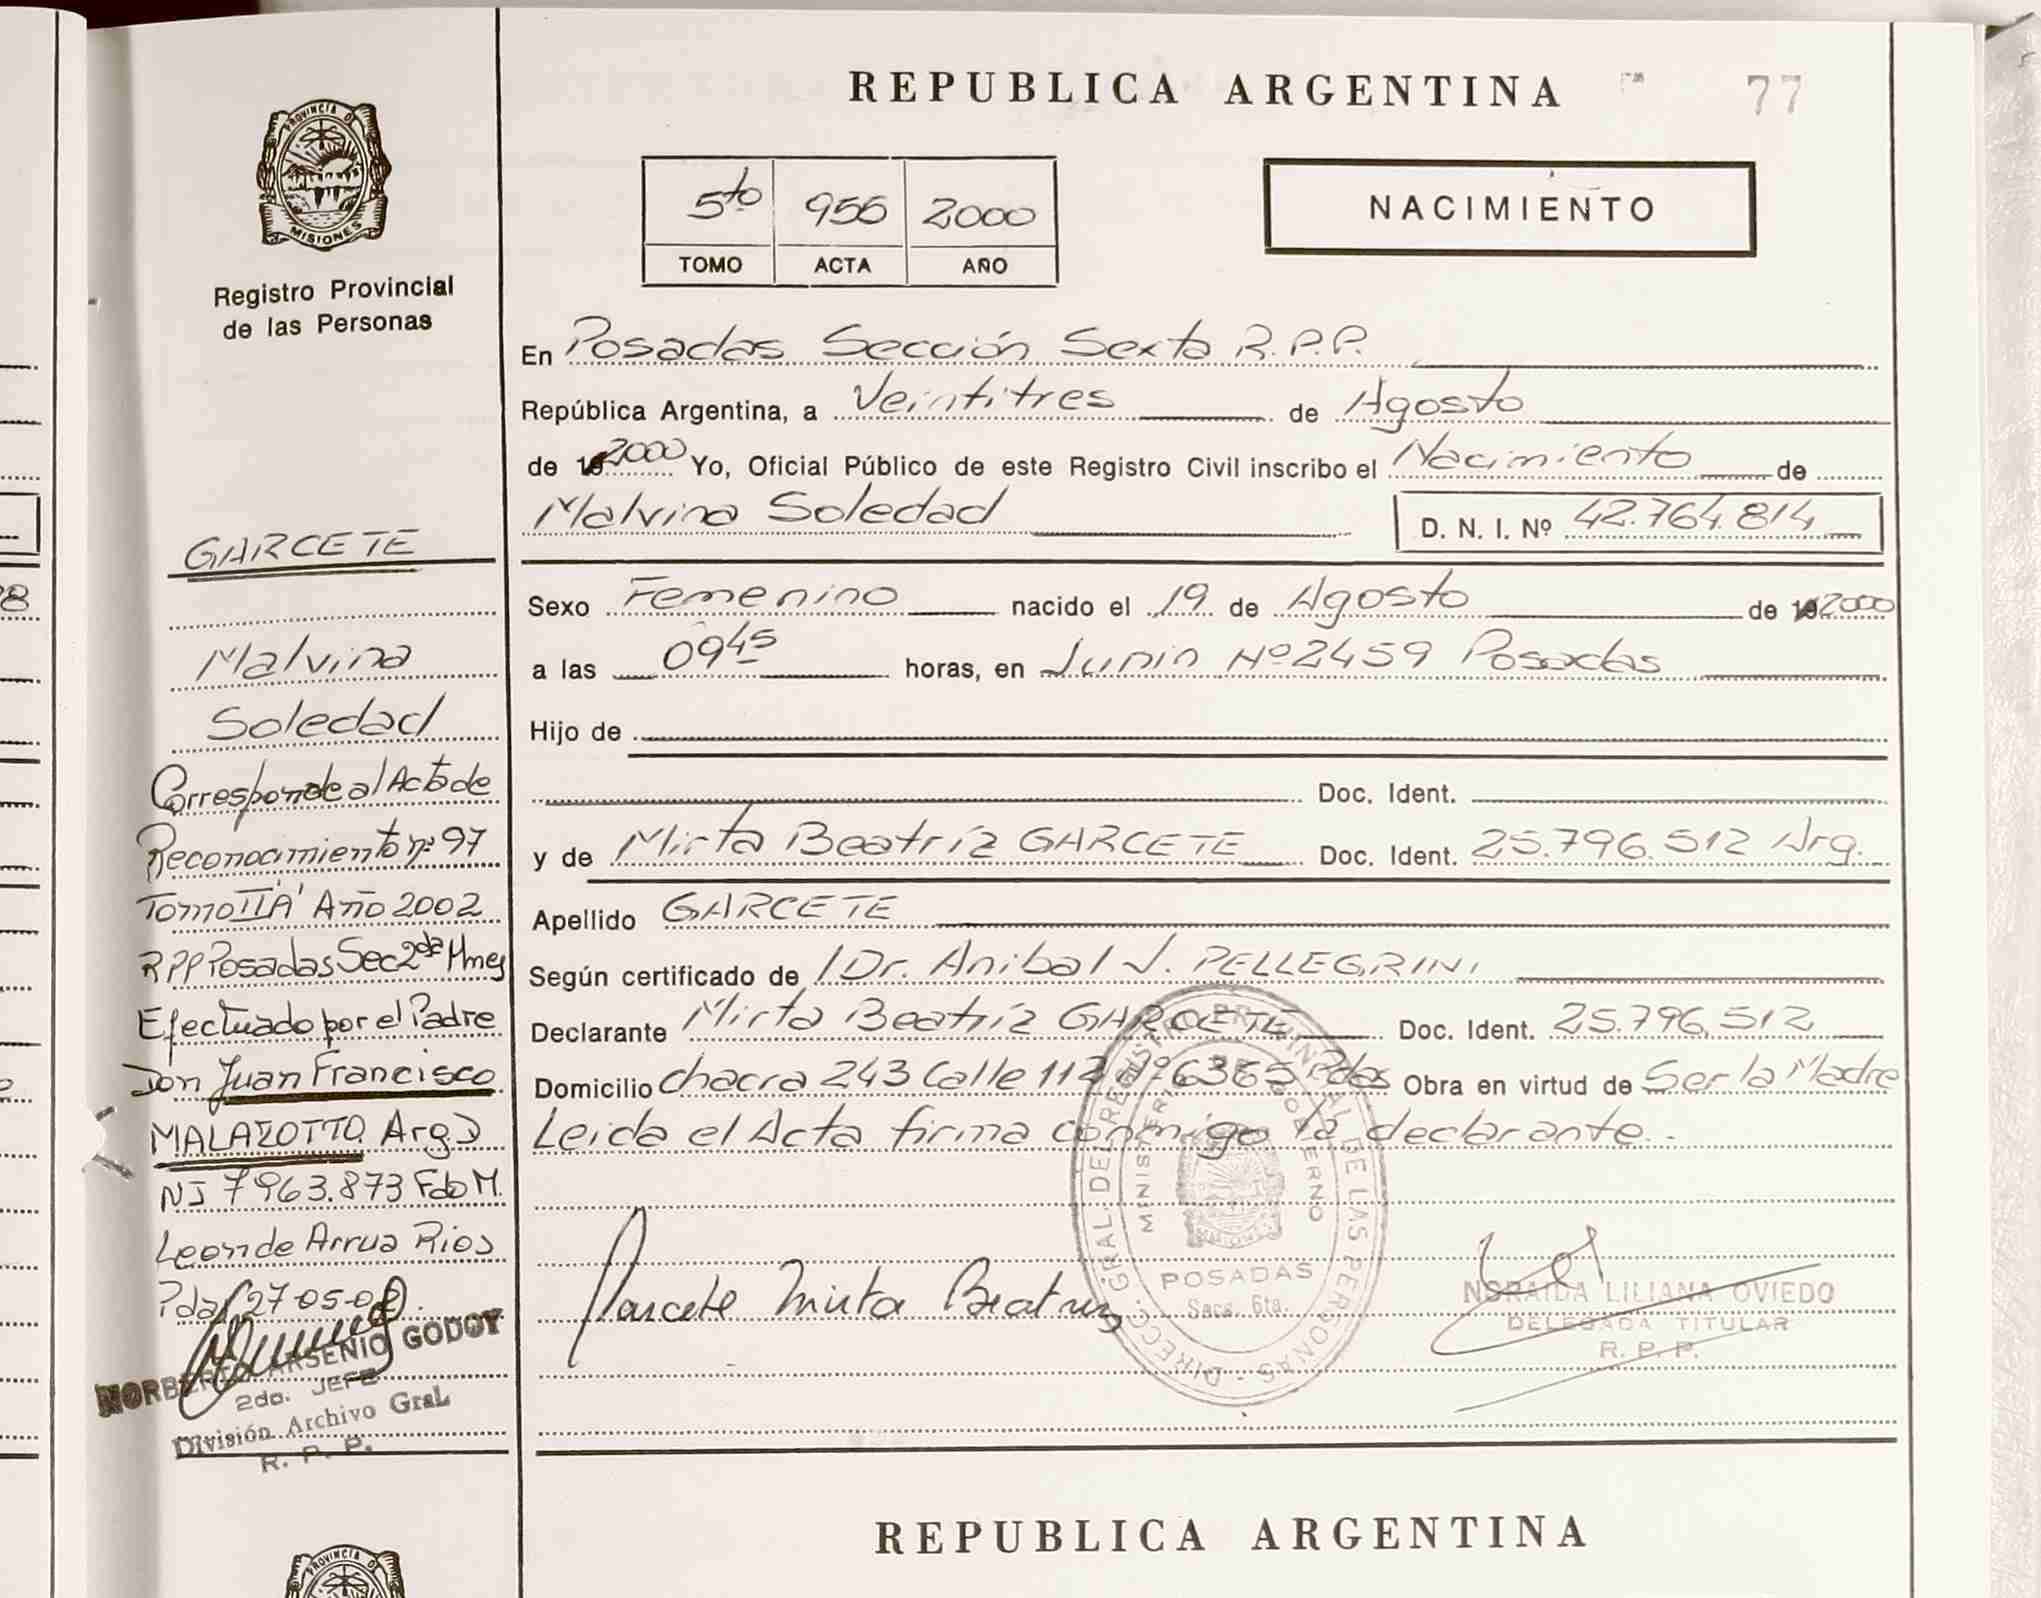 REPUBLICA ARGENTINA
77
PROVINCIA DE
MISIONES
Registro Provincial
de las Personas
5to 956 2000
TOMO ACTA AÑO
NACIMIENTO
En Posadas Sección Sexta R.P.P.
República Argentina, a Veintitres de Agosto
de 2000 Yo, Oficial Público de este Registro Civil inscribo el Nacimiento de
Malvina Soledad D. N. I. Nº 42.764.814
Sexo Femenino nacido el 19 de Agosto de 2000
a las 09 45 horas, en Junin Nº 2459 Posadas
Hijo de
Doc. Ident.
y de Mirta Beatríz GARCETE Doc. Ident. 25.796.512 Arg.
Apellido GARCETE
Según certificado de Dr. Anibal J. PELLEGRINI
Declarante Mirta Beatríz GARCETE Doc. Ident. 25.796.512
Domicilio chacra 243 Calle 112 nº 6365 Pdas Obra en virtud de Ser la Madre
Leida el Acta firma conmigo la declarante.
Garcete Mirta Beatriz
DIRECC. GRAL. DEL REGISTRO PROVINCIAL DE LAS PERSONAS
MINISTERIO DE GOBIERNO
POSADAS
Secc. 6ta.
NORAIDA LILIANA OVIEDO
DELEGADA TITULAR
R. P. P.
GARCETE
Malvina
Soledad
Corresponde al Acta de
Reconocimiento nº 97
Tomo II 'A' Año 2002
RPP Posadas Sec 2da Mnes
Efectuado por el Padre
Don Juan Francisco
MALAZOTTO Arg D
NI 7963.873 Fdo M.
Leon de Arrua Rios
Pdas 27-05-02.
NORBERTO ARSENIO GODOY
2do. JEFE
División Archivo Gral
R. P. P.
REPUBLICA ARGENTINA
PROVINCIA DE